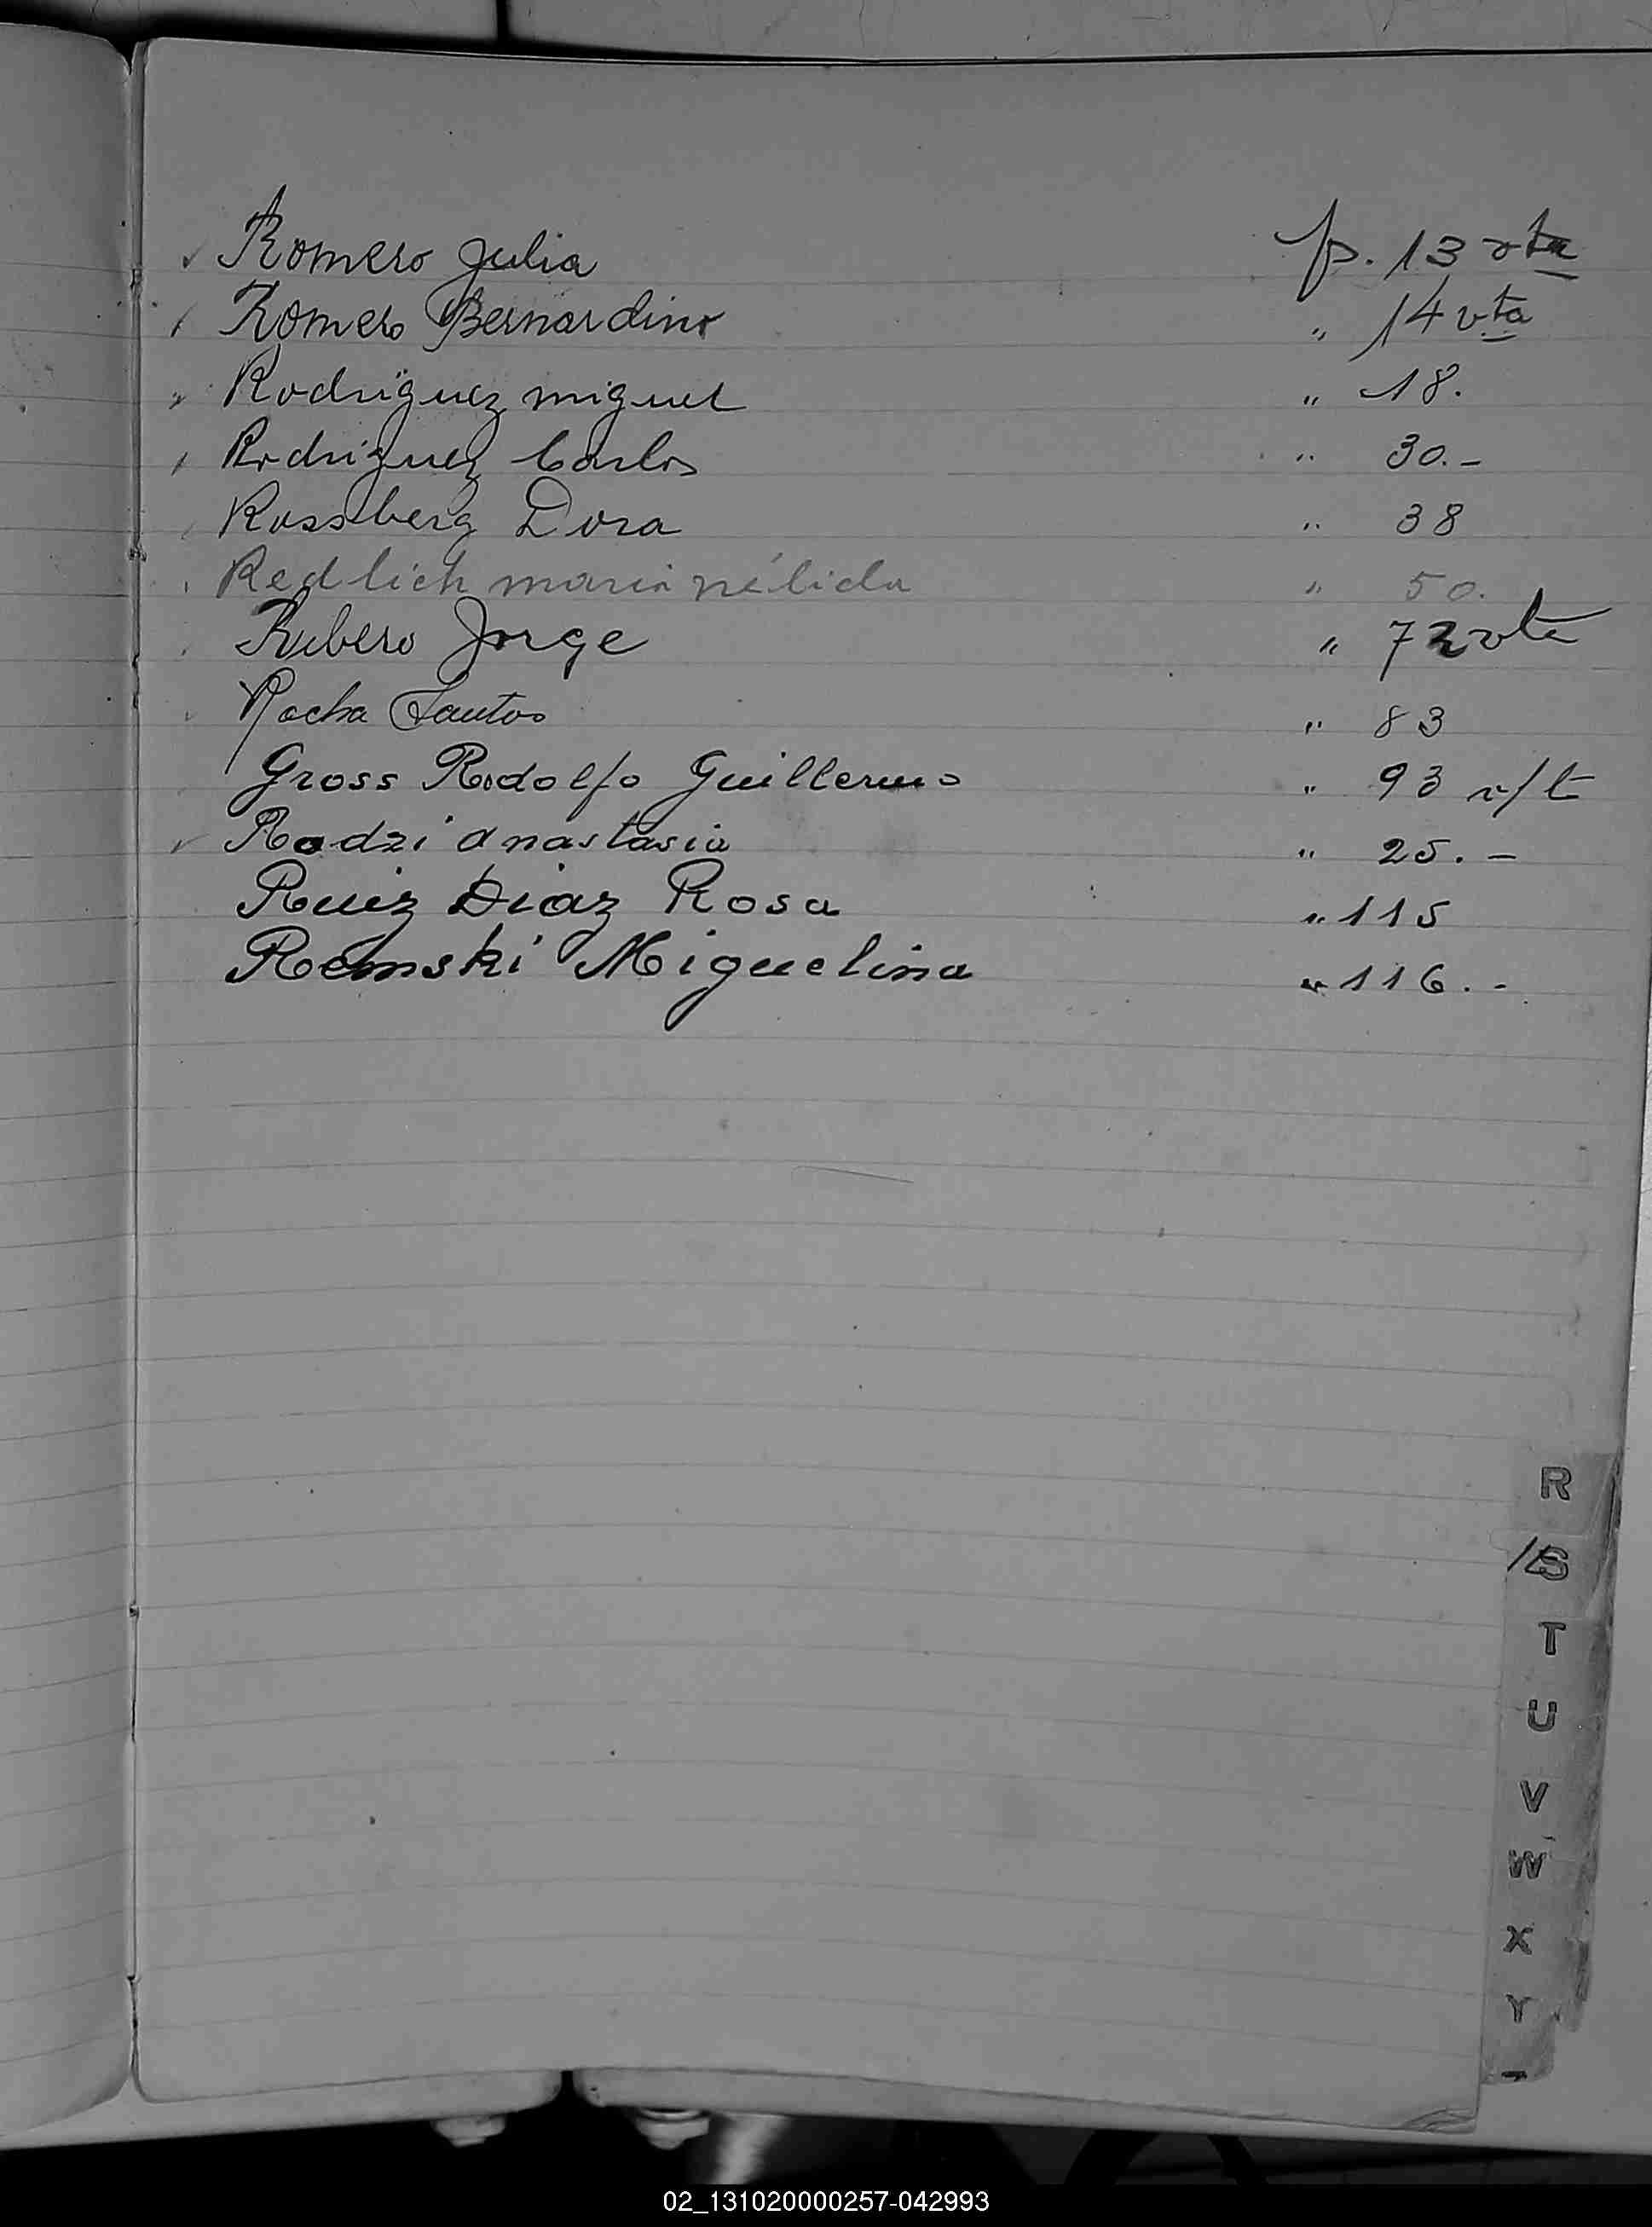 Romero Julia p. 13 vta
Romero Bernardino " 14 vta
Rodriguez miguel " 18.
Rodriguez Carlos " 30.-
Rossberg Dora " 38
Redlich maria nélida " 50.
Rubero Jorge " 72 vta
Rocha Santos " 83
Gross Rodolfo Guillermo " 93 v/t
Rodzi Anastasia " 25.-
Ruiz Diaz Rosa " 115
Remski Miguelina " 116.-
R
S
T
U
V
W
X
Y
02_131020000257-042993